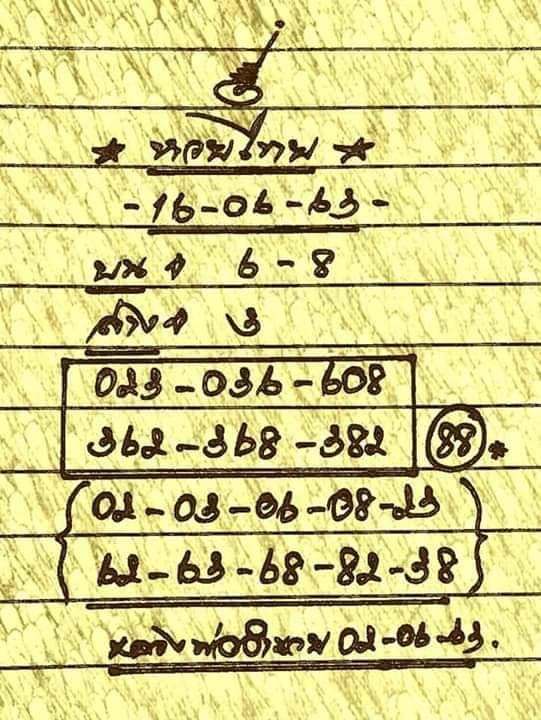 * หวยไทย *
- 16 - 06 - 63 -
บน → 6 - 8
ล่าง → 3
023 - 036 - 608
362 - 368 - 382 88 *
02 - 03 - 06 - 08 - 23
62 - 63 - 68 - 82 - 38
02-06-63.